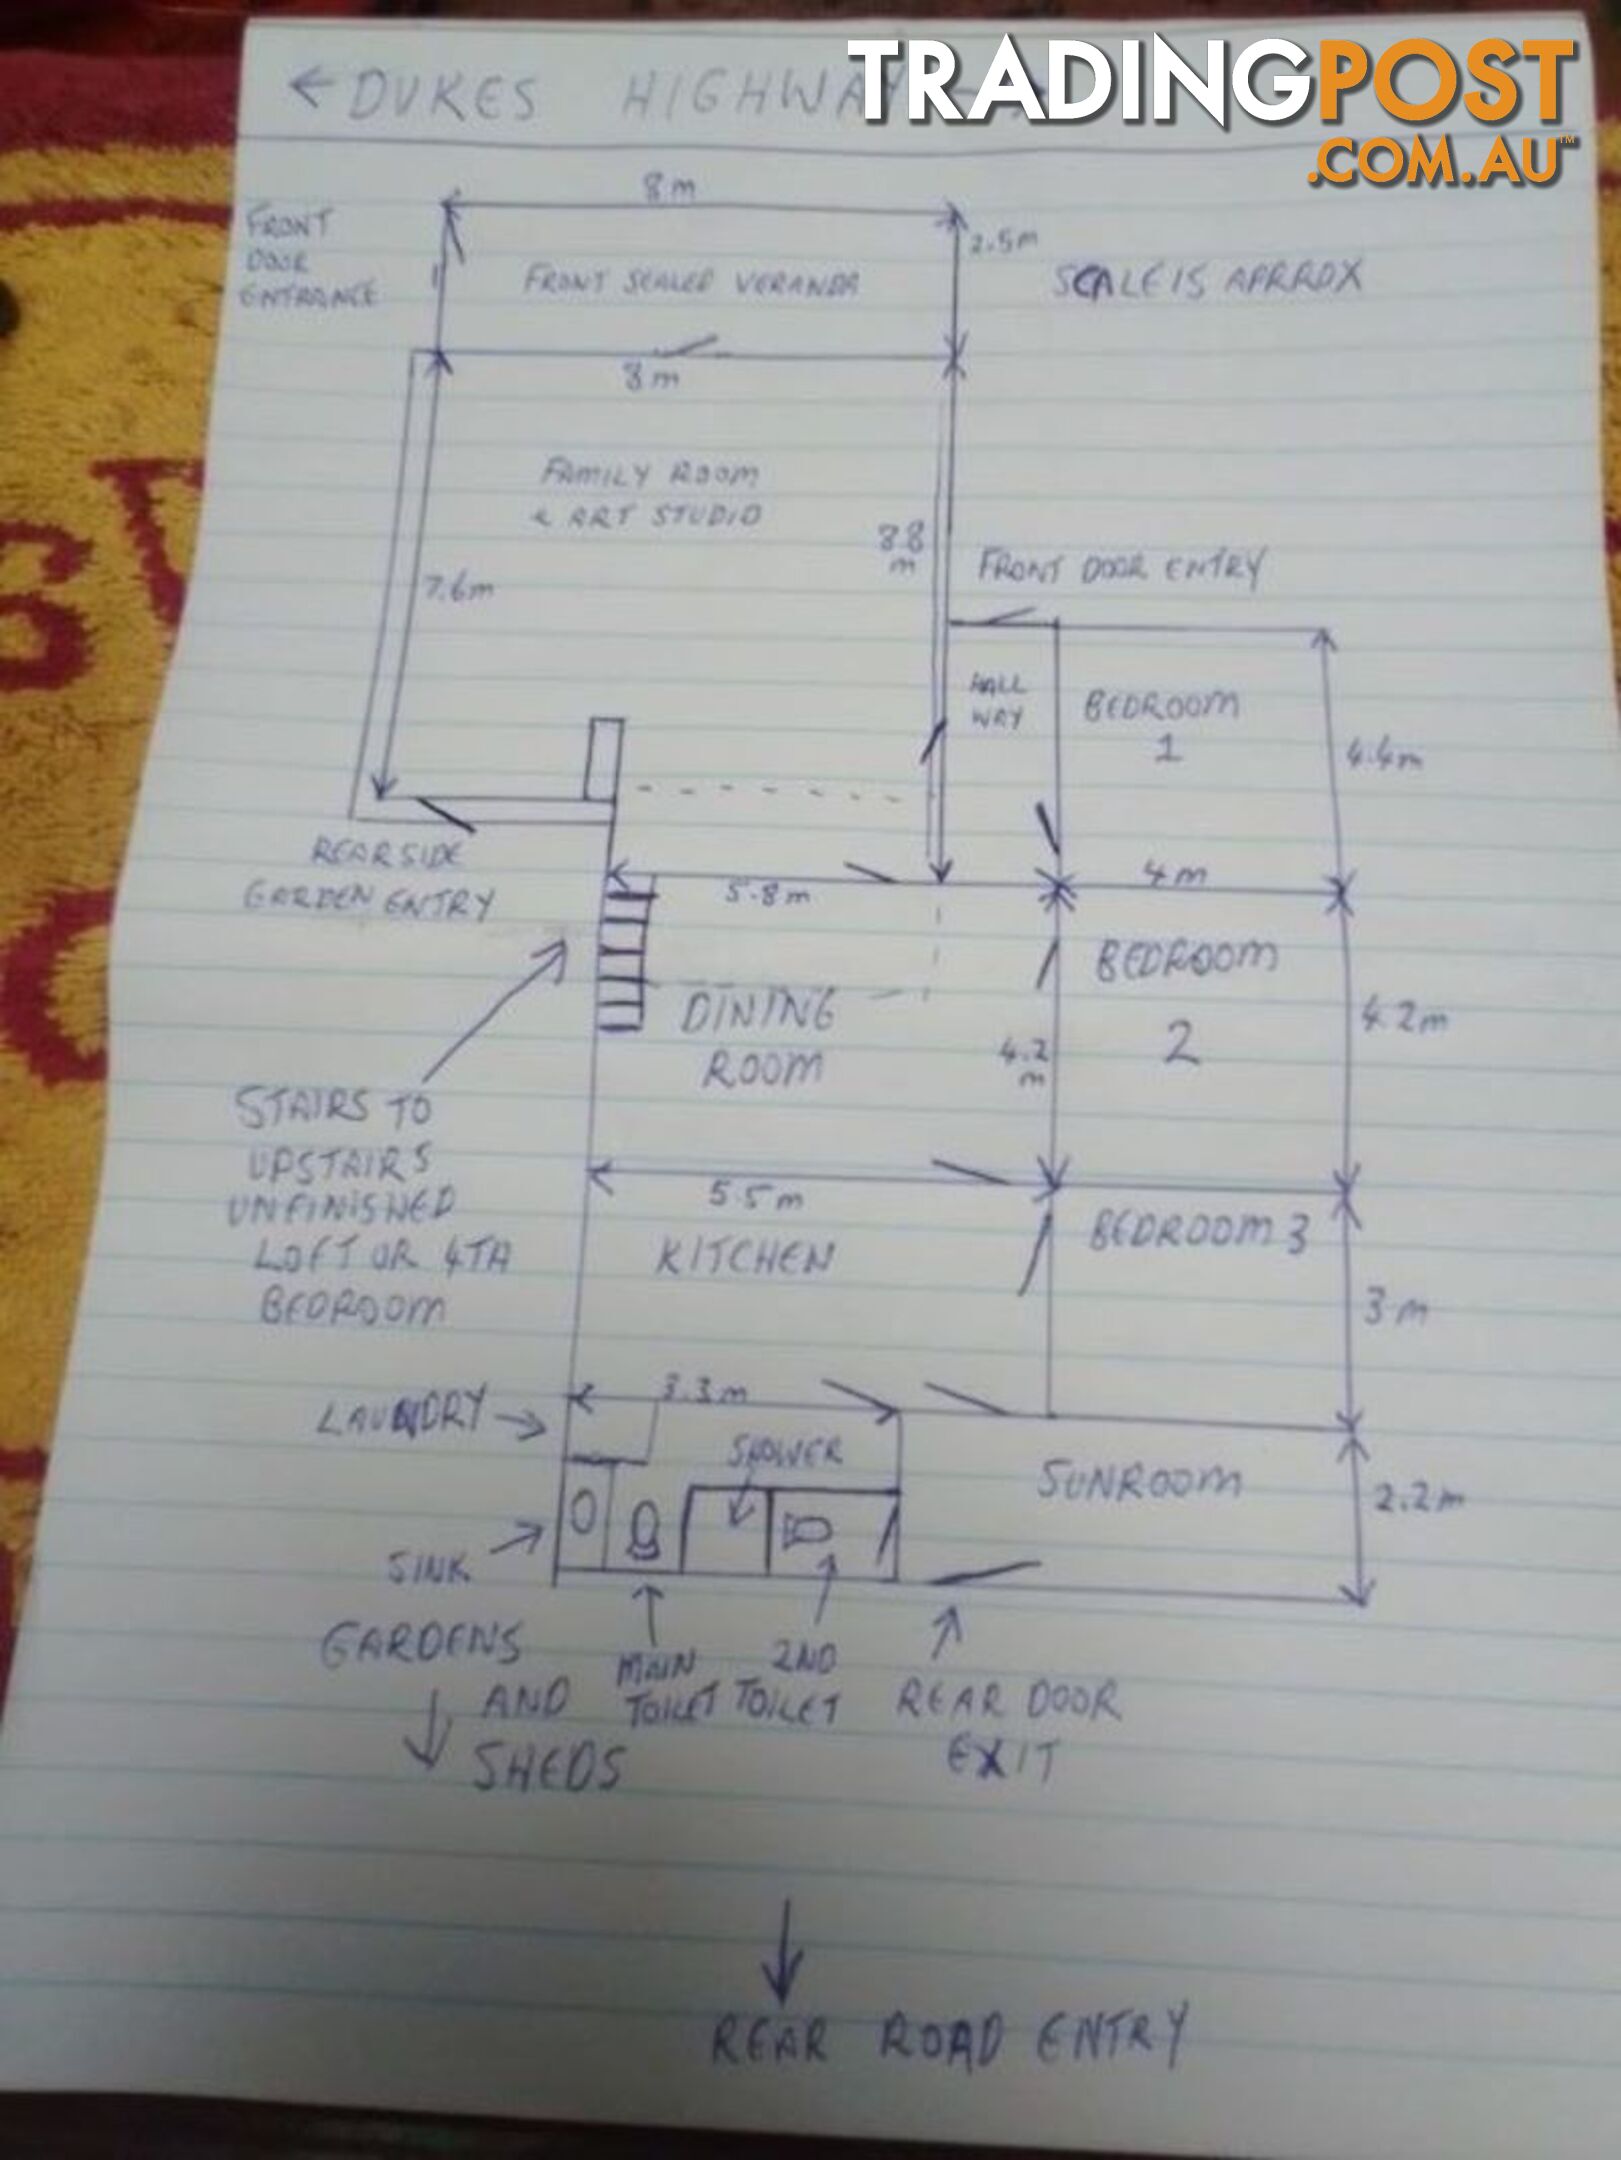 ← DUKES HIGHWAY
TRADINGPOST
.COM.AU™
8m
FRONT
DOOR
ENTRANCE
2.5m
FRONT SEALED VERANDA
SCALE IS APRROX
8m
FAMILY ROOM
& ART STUDIO
8.8
m
FRONT DOOR ENTRY
7.6m
HALL
WAY
BEDROOM
1
4.4m
REAR SIDE
GARDEN ENTRY
5.8m
4m
BEDROOM
2
DINING
ROOM
4.2
m
4.2m
STAIRS TO
UPSTAIRS
UNFINISHED
LOFT OR 4TH
BEDROOM
5.5m
KITCHEN
BEDROOM 3
3m
LAUNDRY →
3.3m
SHOWER
SUNROOM
2.2m
SINK
GARDENS
AND
SHEDS
MAIN
TOILET
2ND
TOILET
REAR DOOR
EXIT
REAR ROAD ENTRY